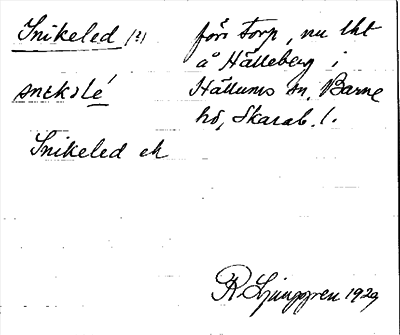 Snikeled /2/
snekəlé
Snikeled ek
förs torp, nu lht
å Hälleberg i
Hällums sn, Barne
hd, Skarab. l.
R Ljunggren 1929